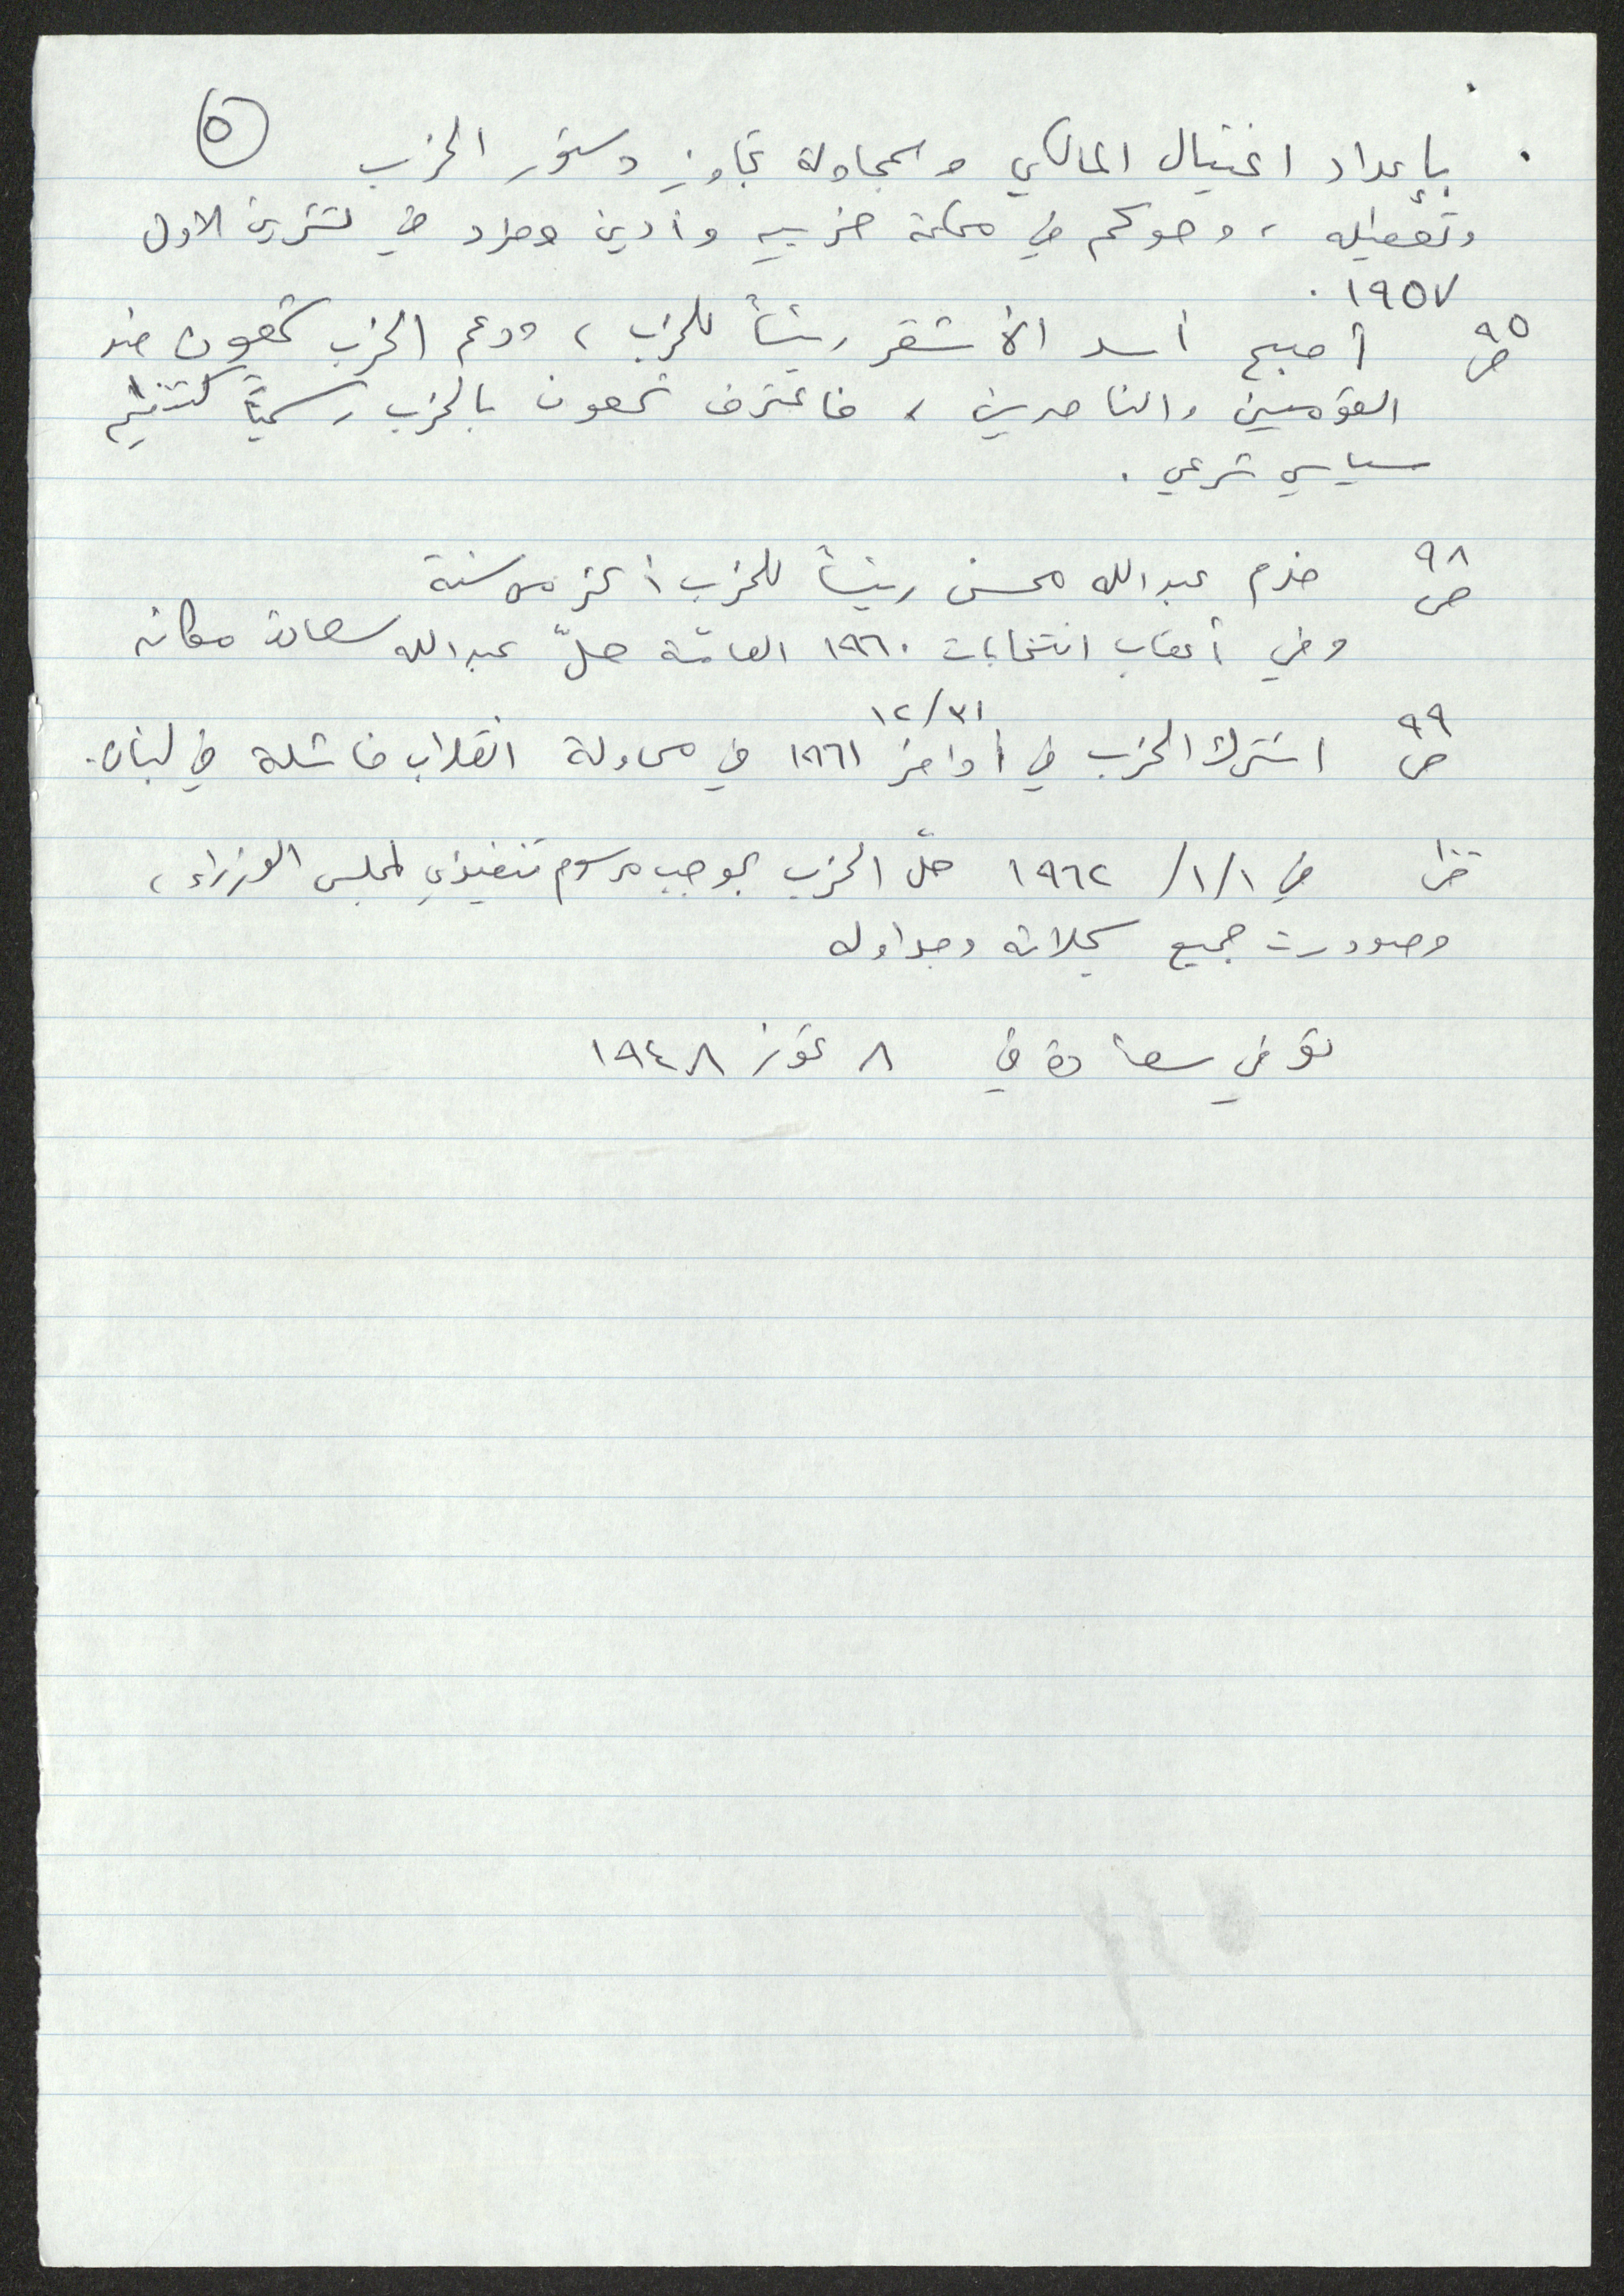 ٥
بإعداد اغتيال المالكي وبمحاولة تجاوز دستور الحزب
وتعطيله ، وحوكم في محكمة حزبيه وأدين وطرد في تشرين الاول
١٩٥٧ .
ص ٩٥ أصبح أسد الأشقر رئيسأ للحزب ، ودعم الحزب شمعون ضد
القوميين والناصريين ، فاعترف شمعون بالحزب رسميّاً كتنظيم
سياسي شرعي .
ص ٩٨ خدم عبد الله محسن رئيسأ للحزب أكثر من سنة
وفي أعقاب انتخابات ١٩٦٠ العامّة حلّ عبد الله سعاده مكانه
١٢/٣١
ص ٩٩ اشترك الحزب في أواخر ١٩٦١ في محاولة انقلاب فاشلة في لبنان.
في ١/١/ ١٩٦٢ حلّ الحزب بموجب مرسوم تنفيذي لمجلس الوزراء ،
وصودرت جميع سجلاته وجداوله
توفي سعادة في ٨ تموز ١٩٤٨